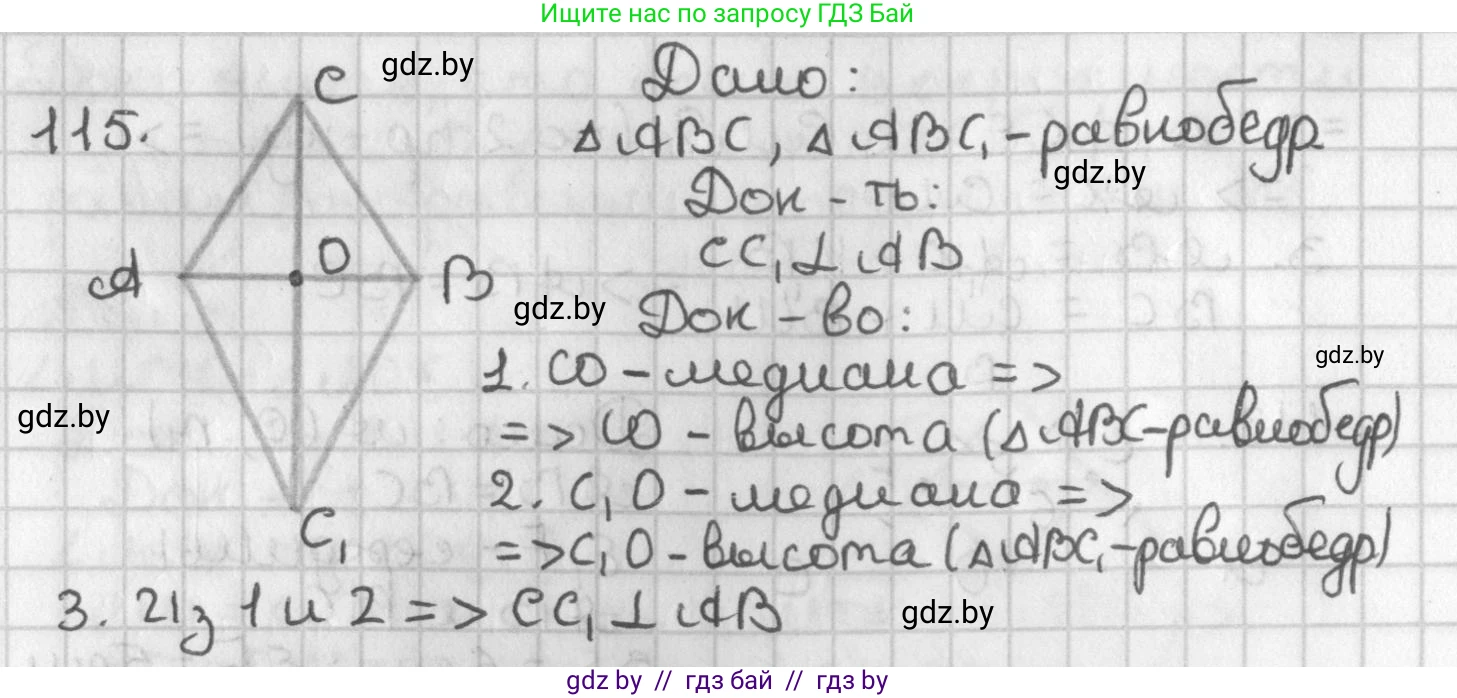 Ищите нас по запросу ГДЗ Бай
C gdz.by Дано:
115. △ABC, △ABC₁ - равнобедр
gdz.by
Док - ть:
CC₁ ⊥ AB
A O B
gdz.by Док - во:
1. CO - медиана =>
gdz.by
gdz.by
=> CO - высота (△ABC - равнобедр)
2. C₁O - медиана =>
C₁
=> C₁O - высота (△ABC₁ - равнобедр)
3. Из 1 и 2 => CC₁ ⊥ AB gdz.by
gdz by // гдз бай // гдз by